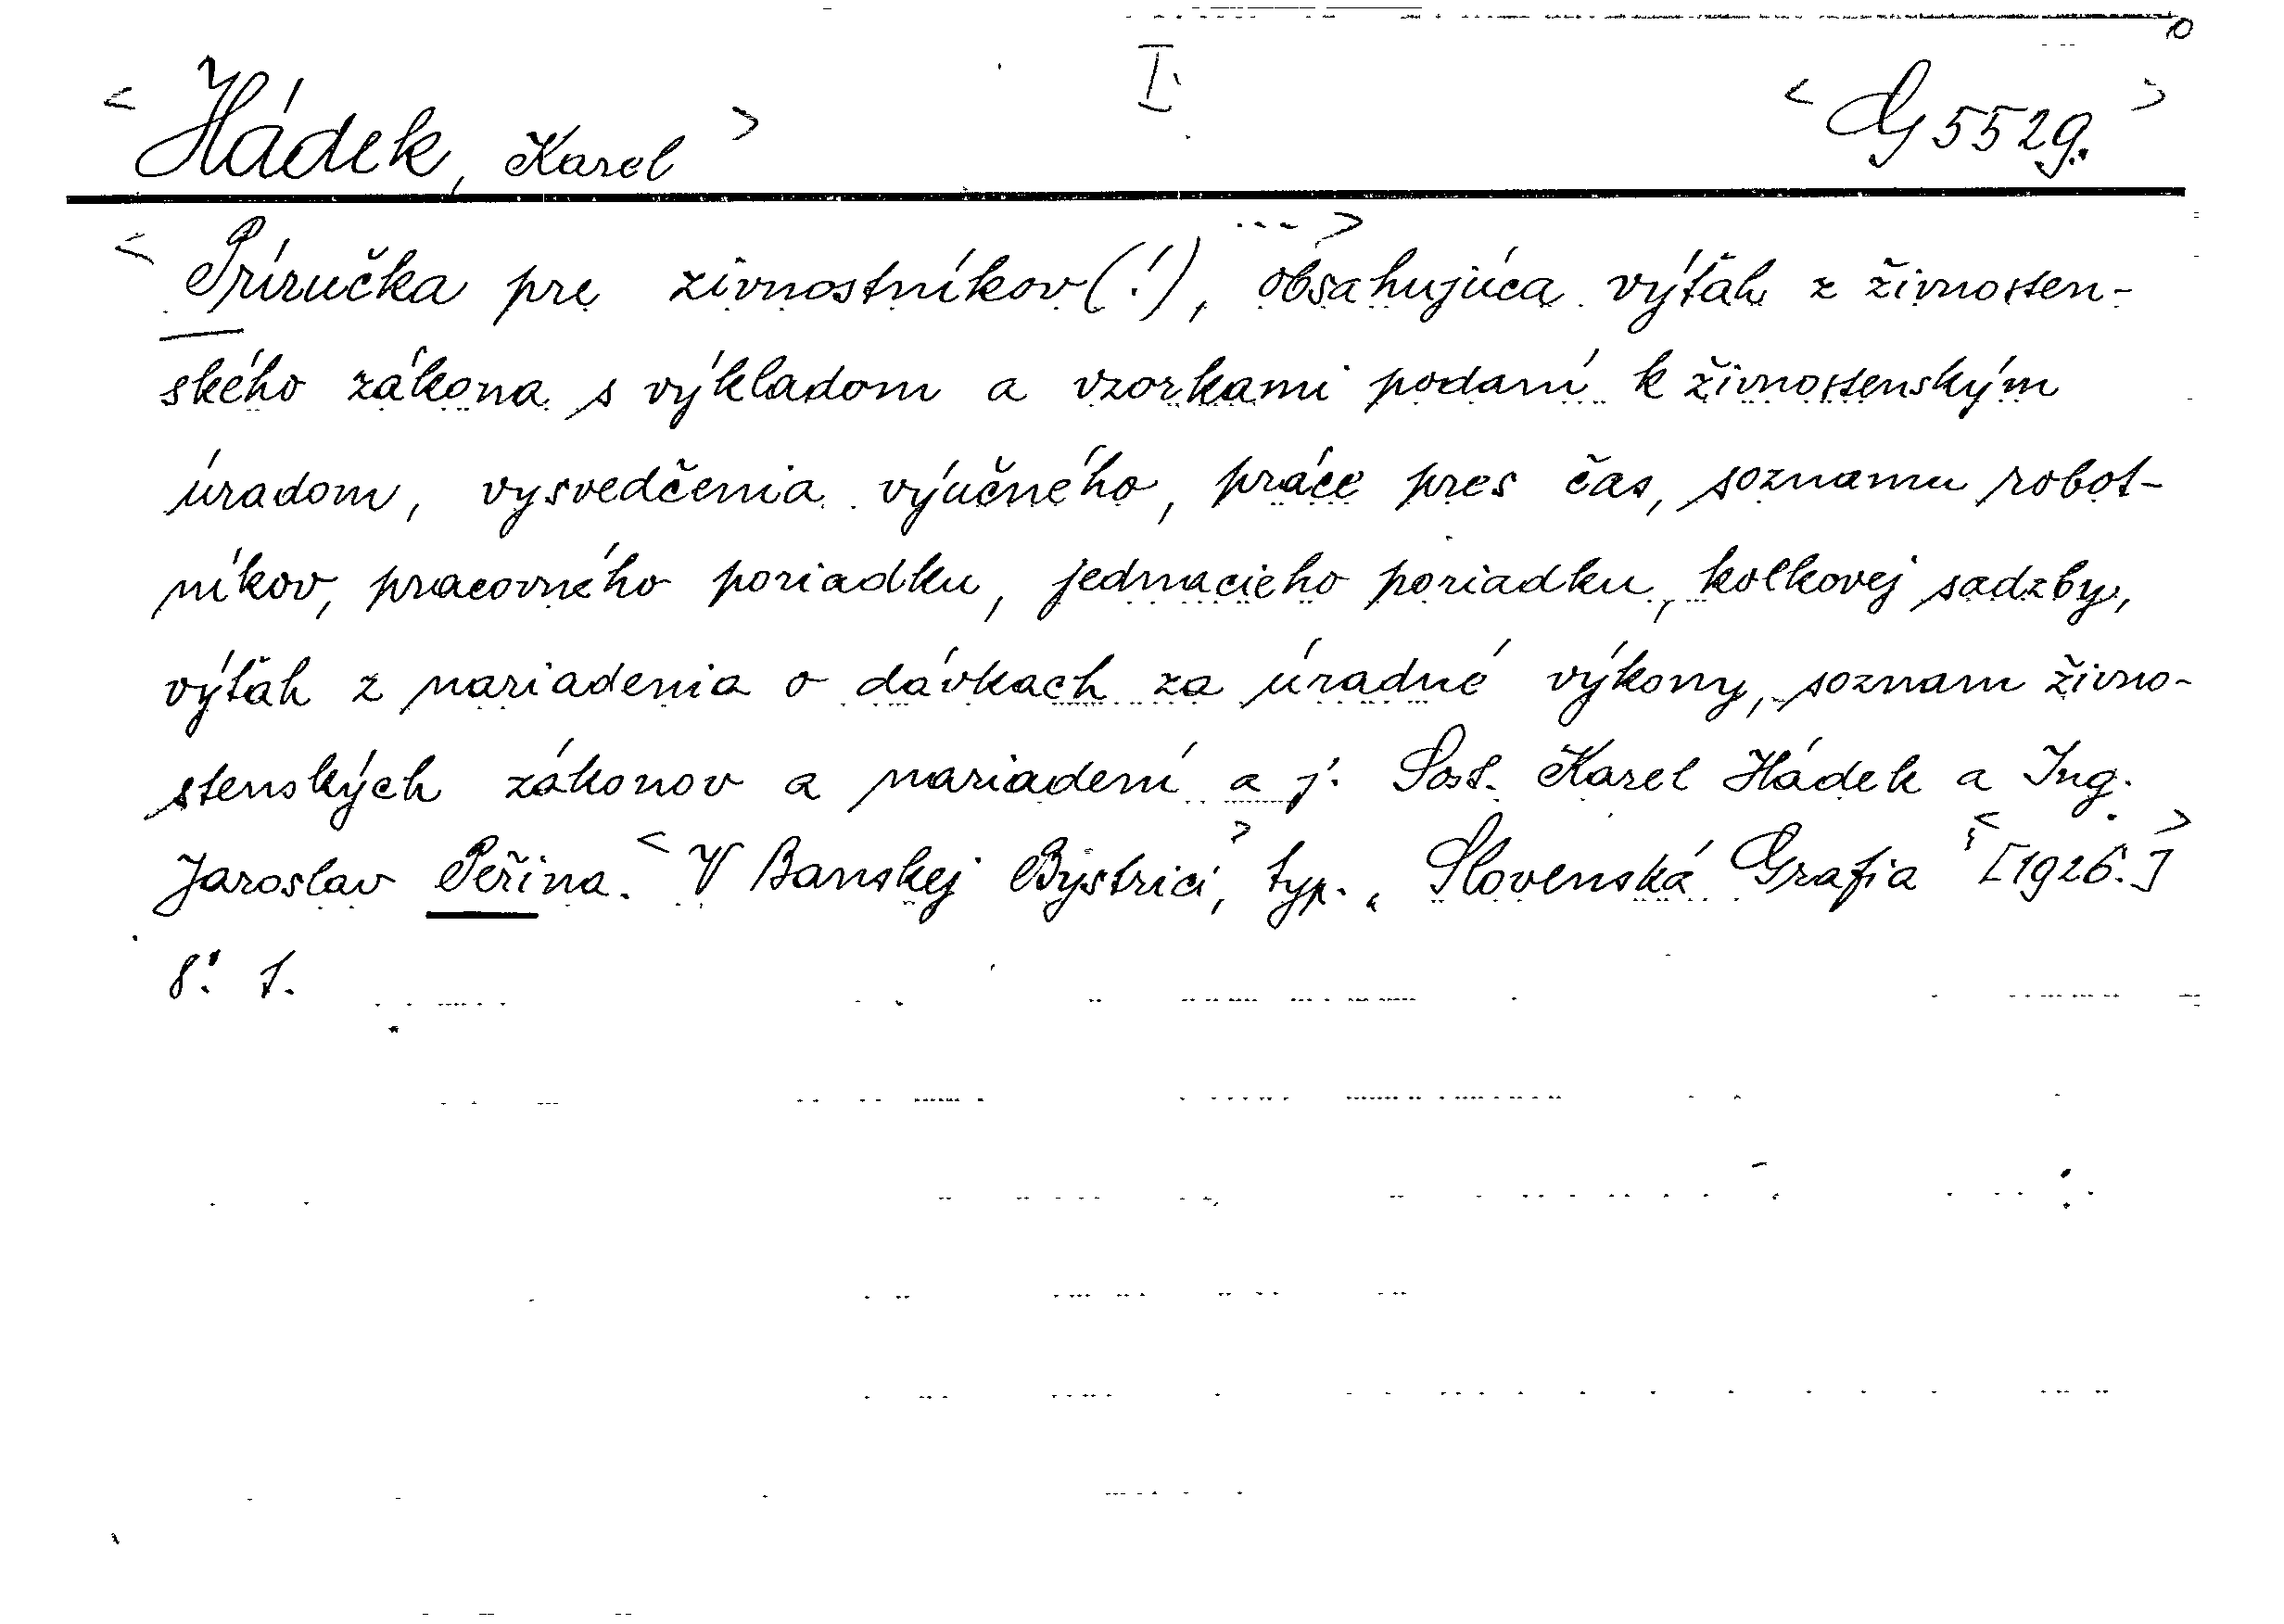 I.
< Hádek, Karel > < G 5529. >
< Príručka pre zivnostníkov(!), ...> obsahujúca výťah z živnosten-
ského zákona s výkladom a vzorkami podaní k živnostenským
úradom, vysvedčenia výučného, práce pres čas, soznamu robot-
níkov, pracovného poriadku, jednacieho poriadku, kolkovej sadzby,
výťah z nariadenia o dávkach za úradné výkony, soznam živno-
stenských zákonov a nariadení a j. Sost. Karel Hádek a Ing.
Jaroslav Peřina. < V Banskej Bystrici, > typ. Slovenská Grafia < [1926.] >
8°. 1.